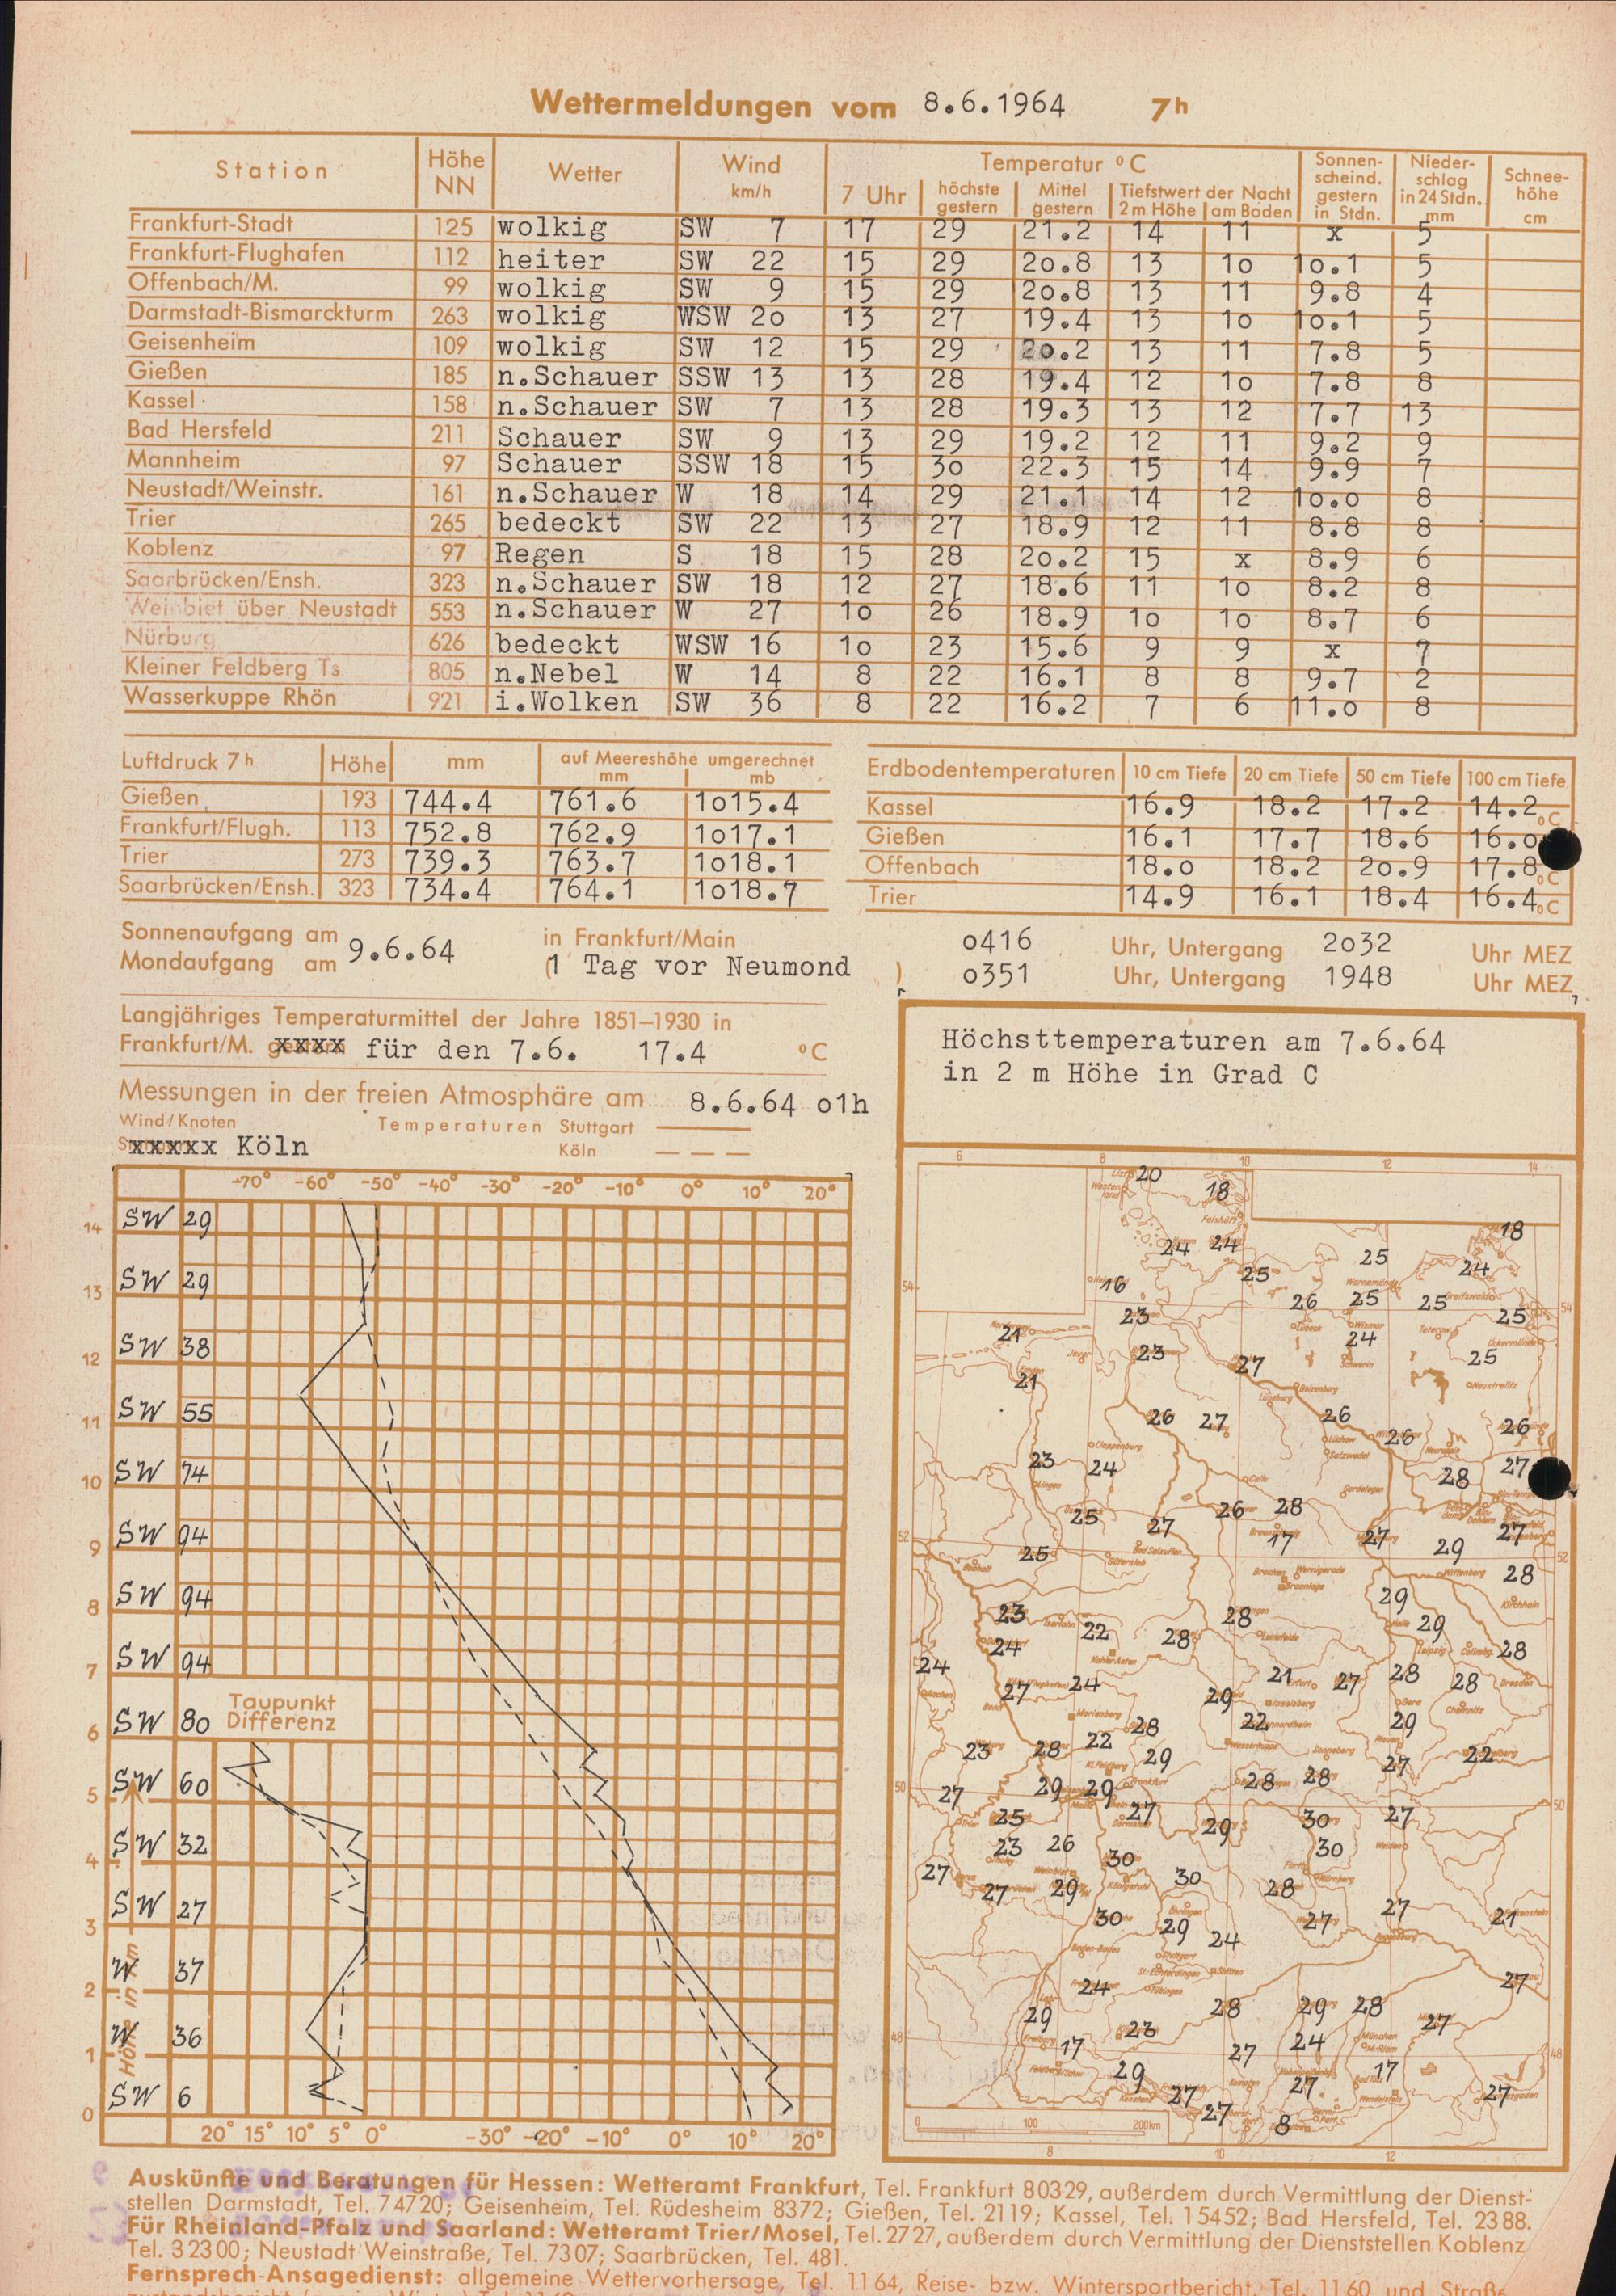 Wettermeldungen vom 8.6.1964 7h
Station Höhe NN Wetter Wind km/h Temperatur °C Sonnenscheind. gestern in Stdn. Niederschlag in 24 Stdn. mm Schneehöhe cm
7 Uhr höchste gestern Mittel gestern Tiefstwert der Nacht 2 m Höhe am Boden
Frankfurt-Stadt 125 wolkig SW 7 17 29 21.2 14 11 x 5
Frankfurt-Flughafen 112 heiter SW 22 15 29 20.8 13 10 10.1 5
Offenbach/M. 99 wolkig SW 9 15 29 20.8 13 11 9.8 4
Darmstadt-Bismarckturm 263 wolkig WSW 20 13 27 19.4 13 10 10.1 5
Geisenheim 109 wolkig SW 12 15 29 20.2 13 11 7.8 5
Gießen 185 n.Schauer SSW 13 13 28 19.4 12 10 7.8 8
Kassel 158 n.Schauer SW 7 13 28 19.3 13 12 7.7 13
Bad Hersfeld 211 Schauer SW 9 13 29 19.2 12 11 9.2 9
Mannheim 97 Schauer SSW 18 15 30 22.3 15 14 9.9 7
Neustadt/Weinstr. 161 n.Schauer W 18 14 29 21.1 14 12 10.0 8
Trier 265 bedeckt SW 22 13 27 18.9 12 11 8.8 8
Koblenz 97 Regen S 18 15 28 20.2 15 x 8.9 6
Saarbrücken/Ensh. 323 n.Schauer SW 18 12 27 18.6 11 10 8.2 8
Weinbiet über Neustadt 553 n.Schauer W 27 10 26 18.9 10 10 8.7 6
Nürburg 626 bedeckt WSW 16 10 23 15.6 9 9 x 7
Kleiner Feldberg Ts 805 n.Nebel W 14 8 22 16.1 8 8 9.7 2
Wasserkuppe Rhön 921 i.Wolken SW 36 8 22 16.2 7 6 11.0 8
Luftdruck 7h Höhe mm auf Meereshöhe umgerechnet mm mb
Gießen 193 744.4 761.6 1015.4
Frankfurt/Flugh. 113 752.8 762.9 1017.1
Trier 273 739.3 763.7 1018.1
Saarbrücken/Ensh. 323 734.4 764.1 1018.7
Erdbodentemperaturen 10 cm Tiefe 20 cm Tiefe 50 cm Tiefe 100 cm Tiefe
Kassel 16.9 18.2 17.2 14.2 °C
Gießen 16.1 17.7 18.6 16.0
Offenbach 18.0 18.2 20.9 17.8 °C
Trier 14.9 16.1 18.4 16.4 °C
Sonnenaufgang am 9.6.64 in Frankfurt/Main 0416 Uhr, Untergang 2032 Uhr MEZ
Mondaufgang am (1 Tag vor Neumond ) 0351 Uhr, Untergang 1948 Uhr MEZ
Langjähriges Temperaturmittel der Jahre 1851–1930 in
Frankfurt/M. xxxx für den 7.6. 17.4 °C
Messungen in der freien Atmosphäre am 8.6.64 01h
Wind/Knoten Temperaturen Stuttgart
xxxxx Köln Köln
Höchsttemperaturen am 7.6.64
in 2 m Höhe in Grad C
-70° -60° -50° -40° -30° -20° -10° 0° 10° 20°
14 SW 29
13 SW 29
12 SW 38
11 SW 55
10 SW 74
9 SW 94
8 SW 94
7 SW 94
Taupunkt
Differenz
6 SW 80
5 SW 60
4 SW 32
3 SW 27
2 W 37
1 W 36
0 SW 6
Höhe in km
20° 15° 10° 5° 0° -30° -20° -10° 0° 10° 20°
6 8 10 12 14
20 18
18
24 24 25
24
16 25
26 25 25 25
23 24
21 23 27 25
21
26 27 26 26 26
23 24 28 27
25 27 26 28
17 27 29 27
25 28
29
23 22 28 28 29
24 28
24 27 24 21 27 28 28
29
22 29
28
23 28 22 29 27 22
28 28
27 29 29 27
25 29 30 27
23 26 30 30
27 27 29 30 28
30 29 24 27 27 21
24 27
29 28 29 28 27
23 24
17 27 17
29 27 27 27
27 8
0 100 200 km
8 10 12
Auskünfte und Beratungen für Hessen: Wetteramt Frankfurt, Tel. Frankfurt 80329, außerdem durch Vermittlung der Dienst-
stellen Darmstadt, Tel. 74720; Geisenheim, Tel. Rüdesheim 8372; Gießen, Tel. 2119; Kassel, Tel. 15452; Bad Hersfeld, Tel. 2388.
Für Rheinland-Pfalz und Saarland: Wetteramt Trier/Mosel, Tel. 2727, außerdem durch Vermittlung der Dienststellen Koblenz
Tel. 32300; Neustadt Weinstraße, Tel. 7307; Saarbrücken, Tel. 481.
Fernsprech-Ansagedienst: allgemeine Wettervorhersage, Tel. 1164, Reise- bzw. Wintersportbericht, Tel. 1160 und